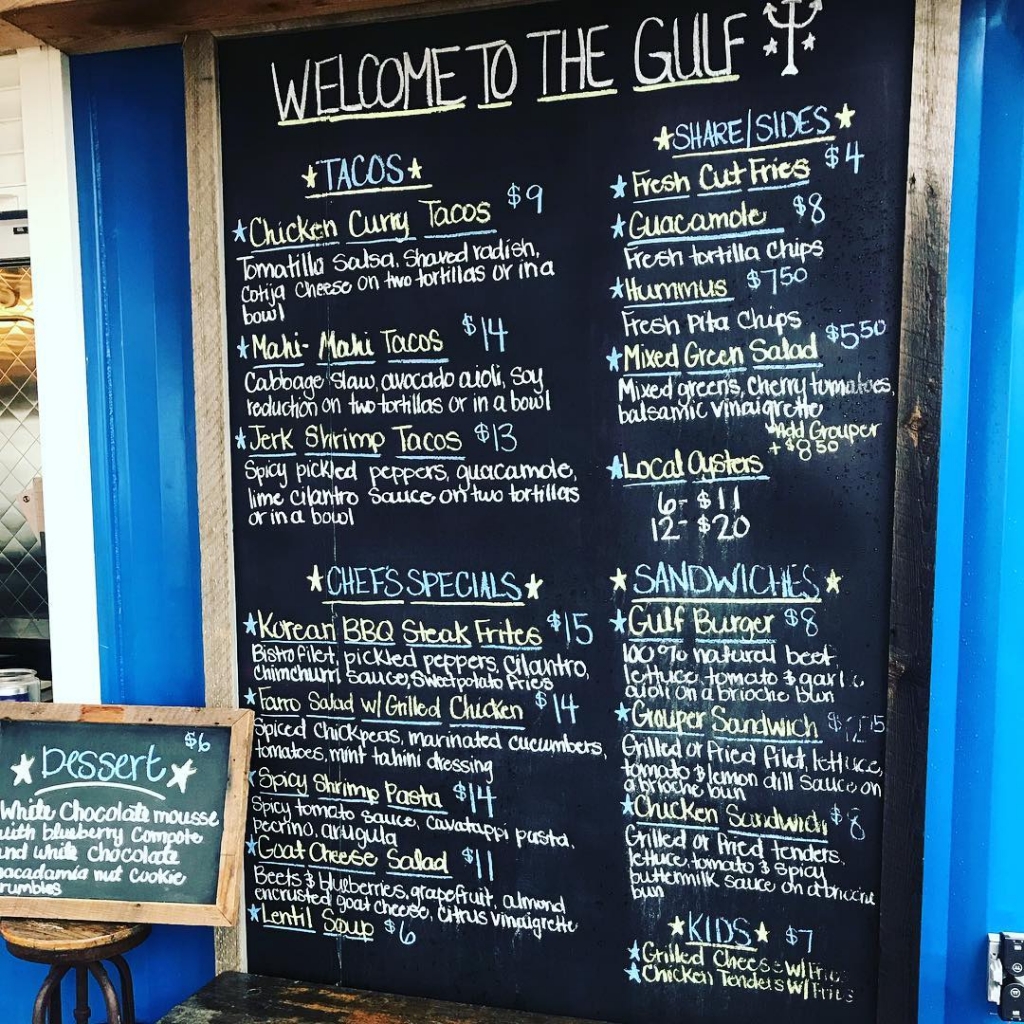 WELCOME TO THE GULF
TACOS
Chicken Curry Tacos $9
Tomatilla Salsa, Shaved radish,
Cotija Cheese on two tortillas or in a
bowl
Mahi-Mahi Tacos $14
Cabbage slaw, avocado aioli, Soy
reduction on two tortillas or in a bowl
Jerk Shrimp Tacos $13
Spicy pickled peppers, guacamole,
lime cilantro Sauce on two tortillas
or in a bowl
CHEFS SPECIALS
Korean BBQ Steak Frites $15
Bistro filet, pickled peppers, Cilantro,
Chimchurri sauce, Sweet potato Fries
Farro Salad w/ Grilled Chicken $14
Spiced Chickpeas, marinated cucumbers,
tomatoes, mint tahini dressing
Spicy Shrimp Pasta $14
Spicy tomato sauce, Cavatappi pasta,
pecrino, arugula
Goat Cheese Salad $11
Beets & blueberries, grapefruit, almond
encrusted goat cheese, citrus vinaigrette
Lentil Soup $6
SHARE/SIDES
Fresh Cut Fries $4
Guacamole $8
Fresh tortilla Chips
Hummus $7.50
Fresh Pita Chips
Mixed Green Salad $5.50
Mixed greens, Cherry tomatoes,
balsamic vinaigrette
*Add Grouper
+ $8.50
Local Oysters
6- $11
12- $20
SANDWICHES
Gulf Burger $8
100% natural beef,
lettuce, tomato & garlic
aioli on a brioche bun
Grouper Sandwich
Grilled or Fried Filet, lettuce,
tomato & lemon dill Sauce on
a brioche bun
Chicken Sandwich $8
Grilled or Fried tenders,
lettuce, tomato & spicy
buttermilk sauce on a brioche
bun
KIDS $7
Grilled Cheese w/ Fries
Chicken Tenders w/ Fries
$6
Dessert
White Chocolate mousse
with blueberry Compote
and white Chocolate
macadamia nut Cookie
crumbles